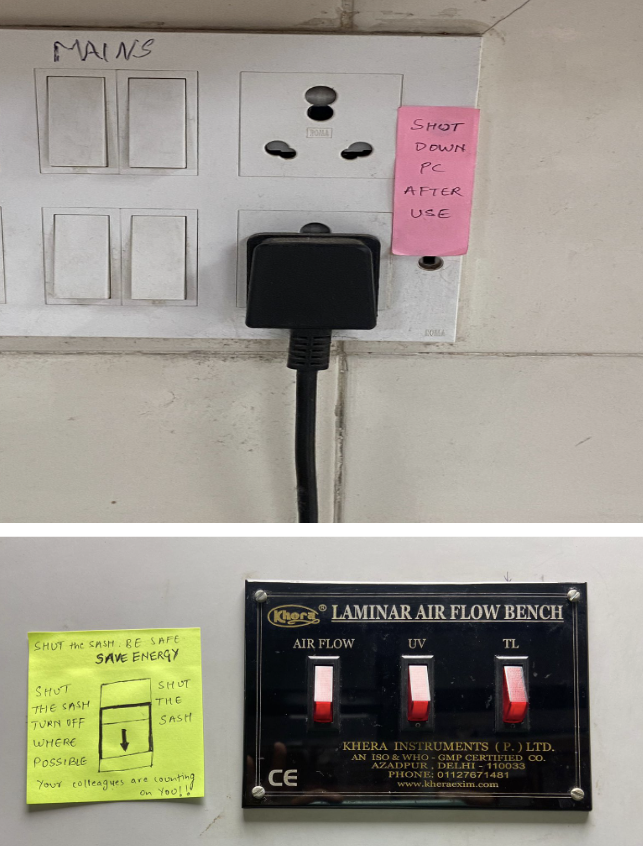 MAINS
SHUT
DOWN
PC
AFTER
USE
SHUT the SASH. BE SAFE
SAVE ENERGY
SHUT
THE SASH
TURN OFF
WHERE
POSSIBLE
SHUT
THE
SASH
Your colleagues are counting
on YOU!!
Khera® LAMINAR AIR FLOW BENCH
AIR FLOW UV TL
KHERA INSTRUMENTS (P.) LTD.
AN ISO & WHO - GMP CERTIFIED CO.
AZADPUR, DELHI - 110033
PHONE: 01127671481
www.kheraexim.com
CE